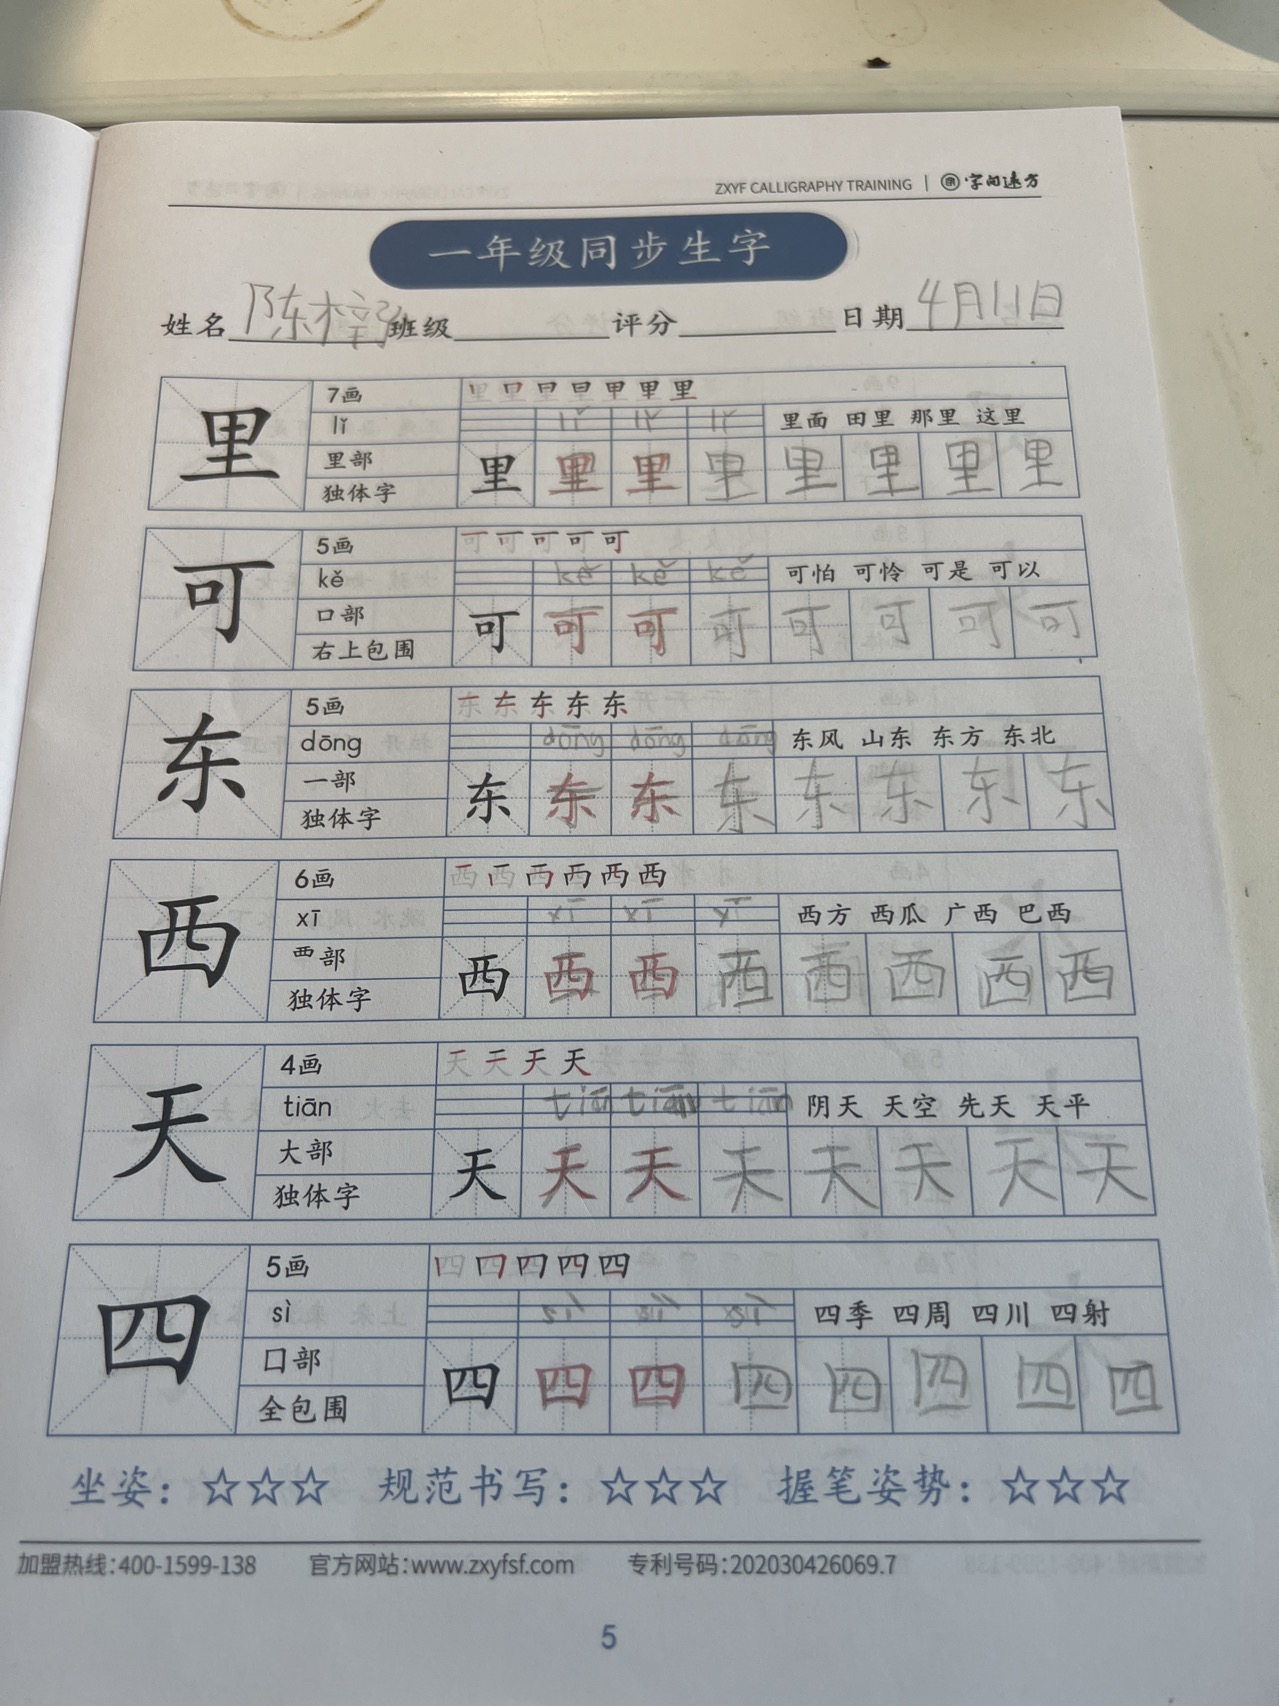 ZXYF CALLIGRAPHY TRAINING | 字向远方
一年级同步生字
姓名 陈梓 班级 评分 日期 4月11日
7画 里 里 里 里 里 里 里
里 lǐ lǐ lǐ lǐ 里面 田里 那里 这里
里部 里 里 里 里 里 里 里 里
独体字
5画 可 可 可 可 可
可 kě kě kě kě 可怕 可怜 可是 可以
口部 可 可 可 可 可 可 可 可
右上包围
5画 东 东 东 东 东
东 dōng dōng dōng dōng 东风 山东 东方 东北
一部 东 东 东 东 东 东 东 东
独体字
6画 西 西 西 西 西 西
西 xī xī xī xī 西方 西瓜 广西 巴西
覀部 西 西 西 西 西 西 西 西
独体字
4画 天 天 天 天
天 tiān tiān tiān tiān 阴天 天空 先天 天平
大部 天 天 天 天 天 天 天 天
独体字
5画 四 四 四 四 四
四 sì 四季 四周 四川 四射
囗部 四 四 四 四 四 四 四 四
全包围
坐姿：☆☆☆ 规范书写：☆☆☆ 握笔姿势：☆☆☆
加盟热线：400-1599-138 官方网站：www.zxyfsf.com 专利号码：202030426069.7
5